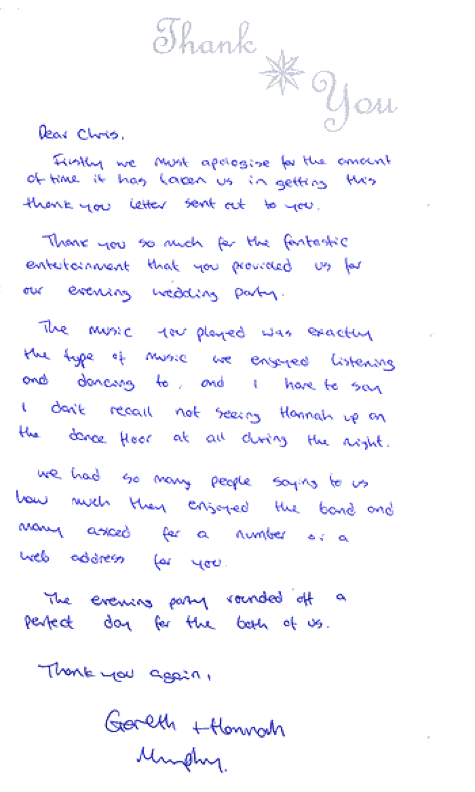 Thank
You
Dear Chris,
Firstly we must apologise for the amount
of time it has taken us in getting this
thank you letter sent out to you.
Thank you so much for the fantastic
entertainment that you provided us for
our evening wedding party.
The music you played was exactly
the type of music we enjoyed listening
and dancing to, and I have to say
I don't recall not seeing Hannah up on
the dance floor at all during the night.
We had so many people saying to us
how much they enjoyed the band and
many asked for a number or a
web address for you.
The evening party rounded off a
perfect day for the both of us.
Thank you again,
Gareth + Hannah
Murphy.